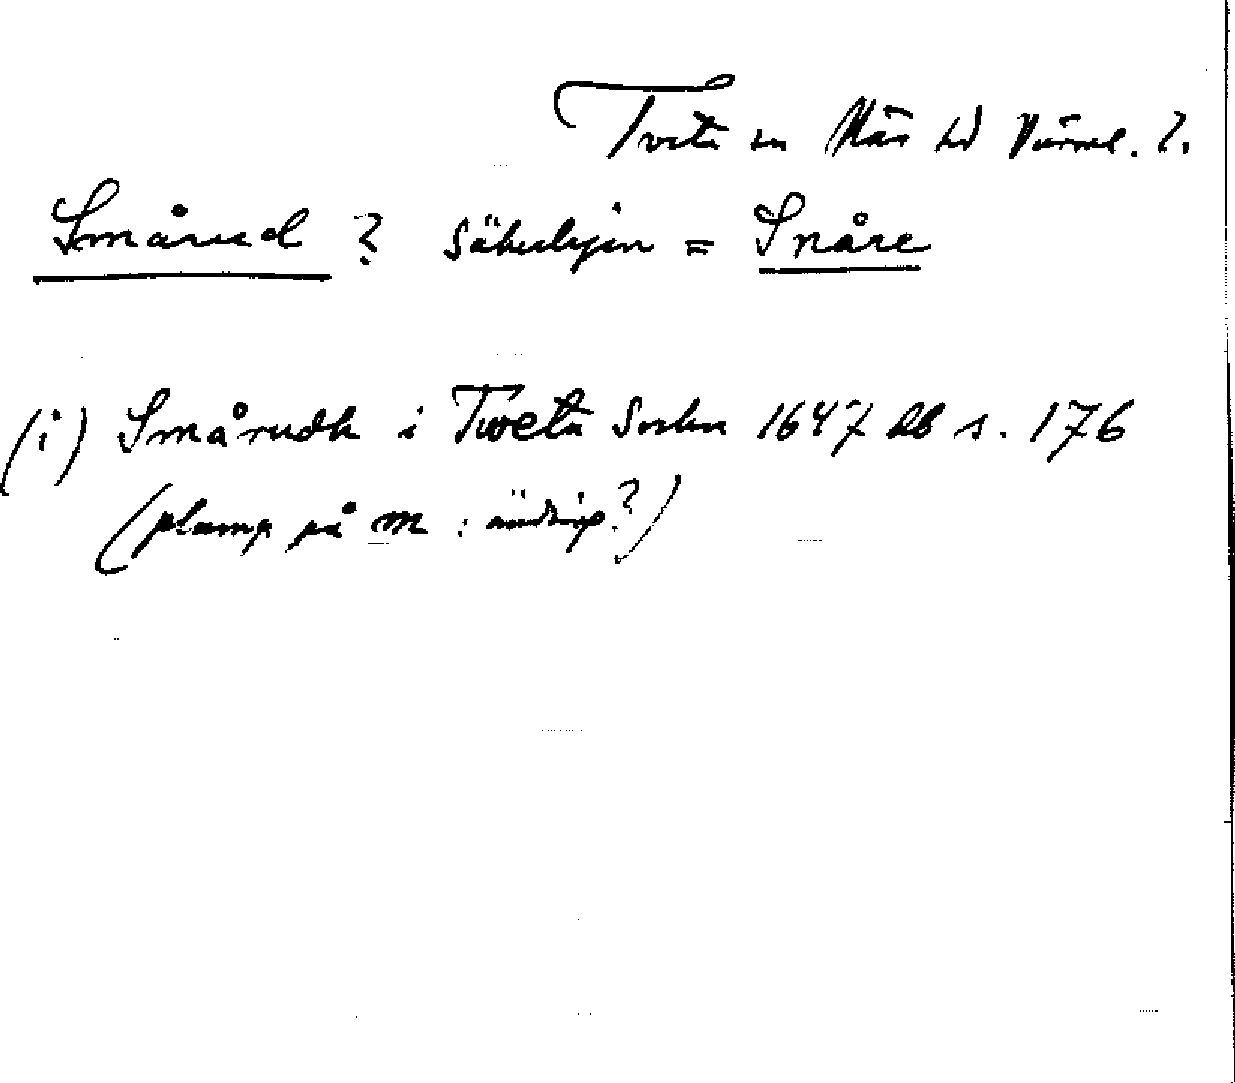 Tveta sn Näs hd Värml. ?.
Smårud ? säkerligen = Snåre
(i) Smårudh i Tweta Sockn 1647 db s. 176
(plump på m : ändring?)